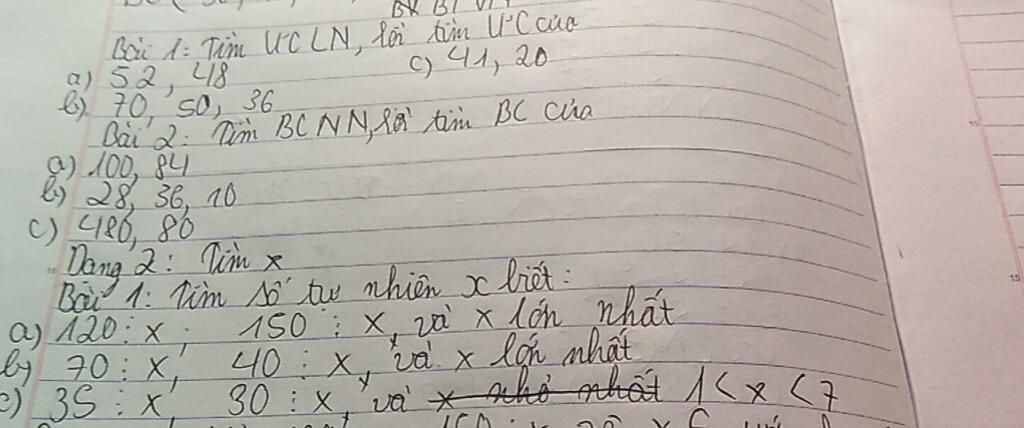 Bài 1: Tìm ƯCLN, rồi tìm ƯC của
a) 52, 48 c) 41, 20
b) 70, 50, 36
Bài 2: Tìm BCNN, rồi tìm BC của
a) 100, 84
b) 28, 36, 10
c) 480, 80
Dạng 2: Tìm x
Bài 1: Tìm số tự nhiên x biết:
a) 120 : x, 150 : x, và x lớn nhất
b) 70 : x, 40 : x, và x lớn nhất
c) 35 : x, 30 : x, và x nhỏ nhất 1 < x < 7